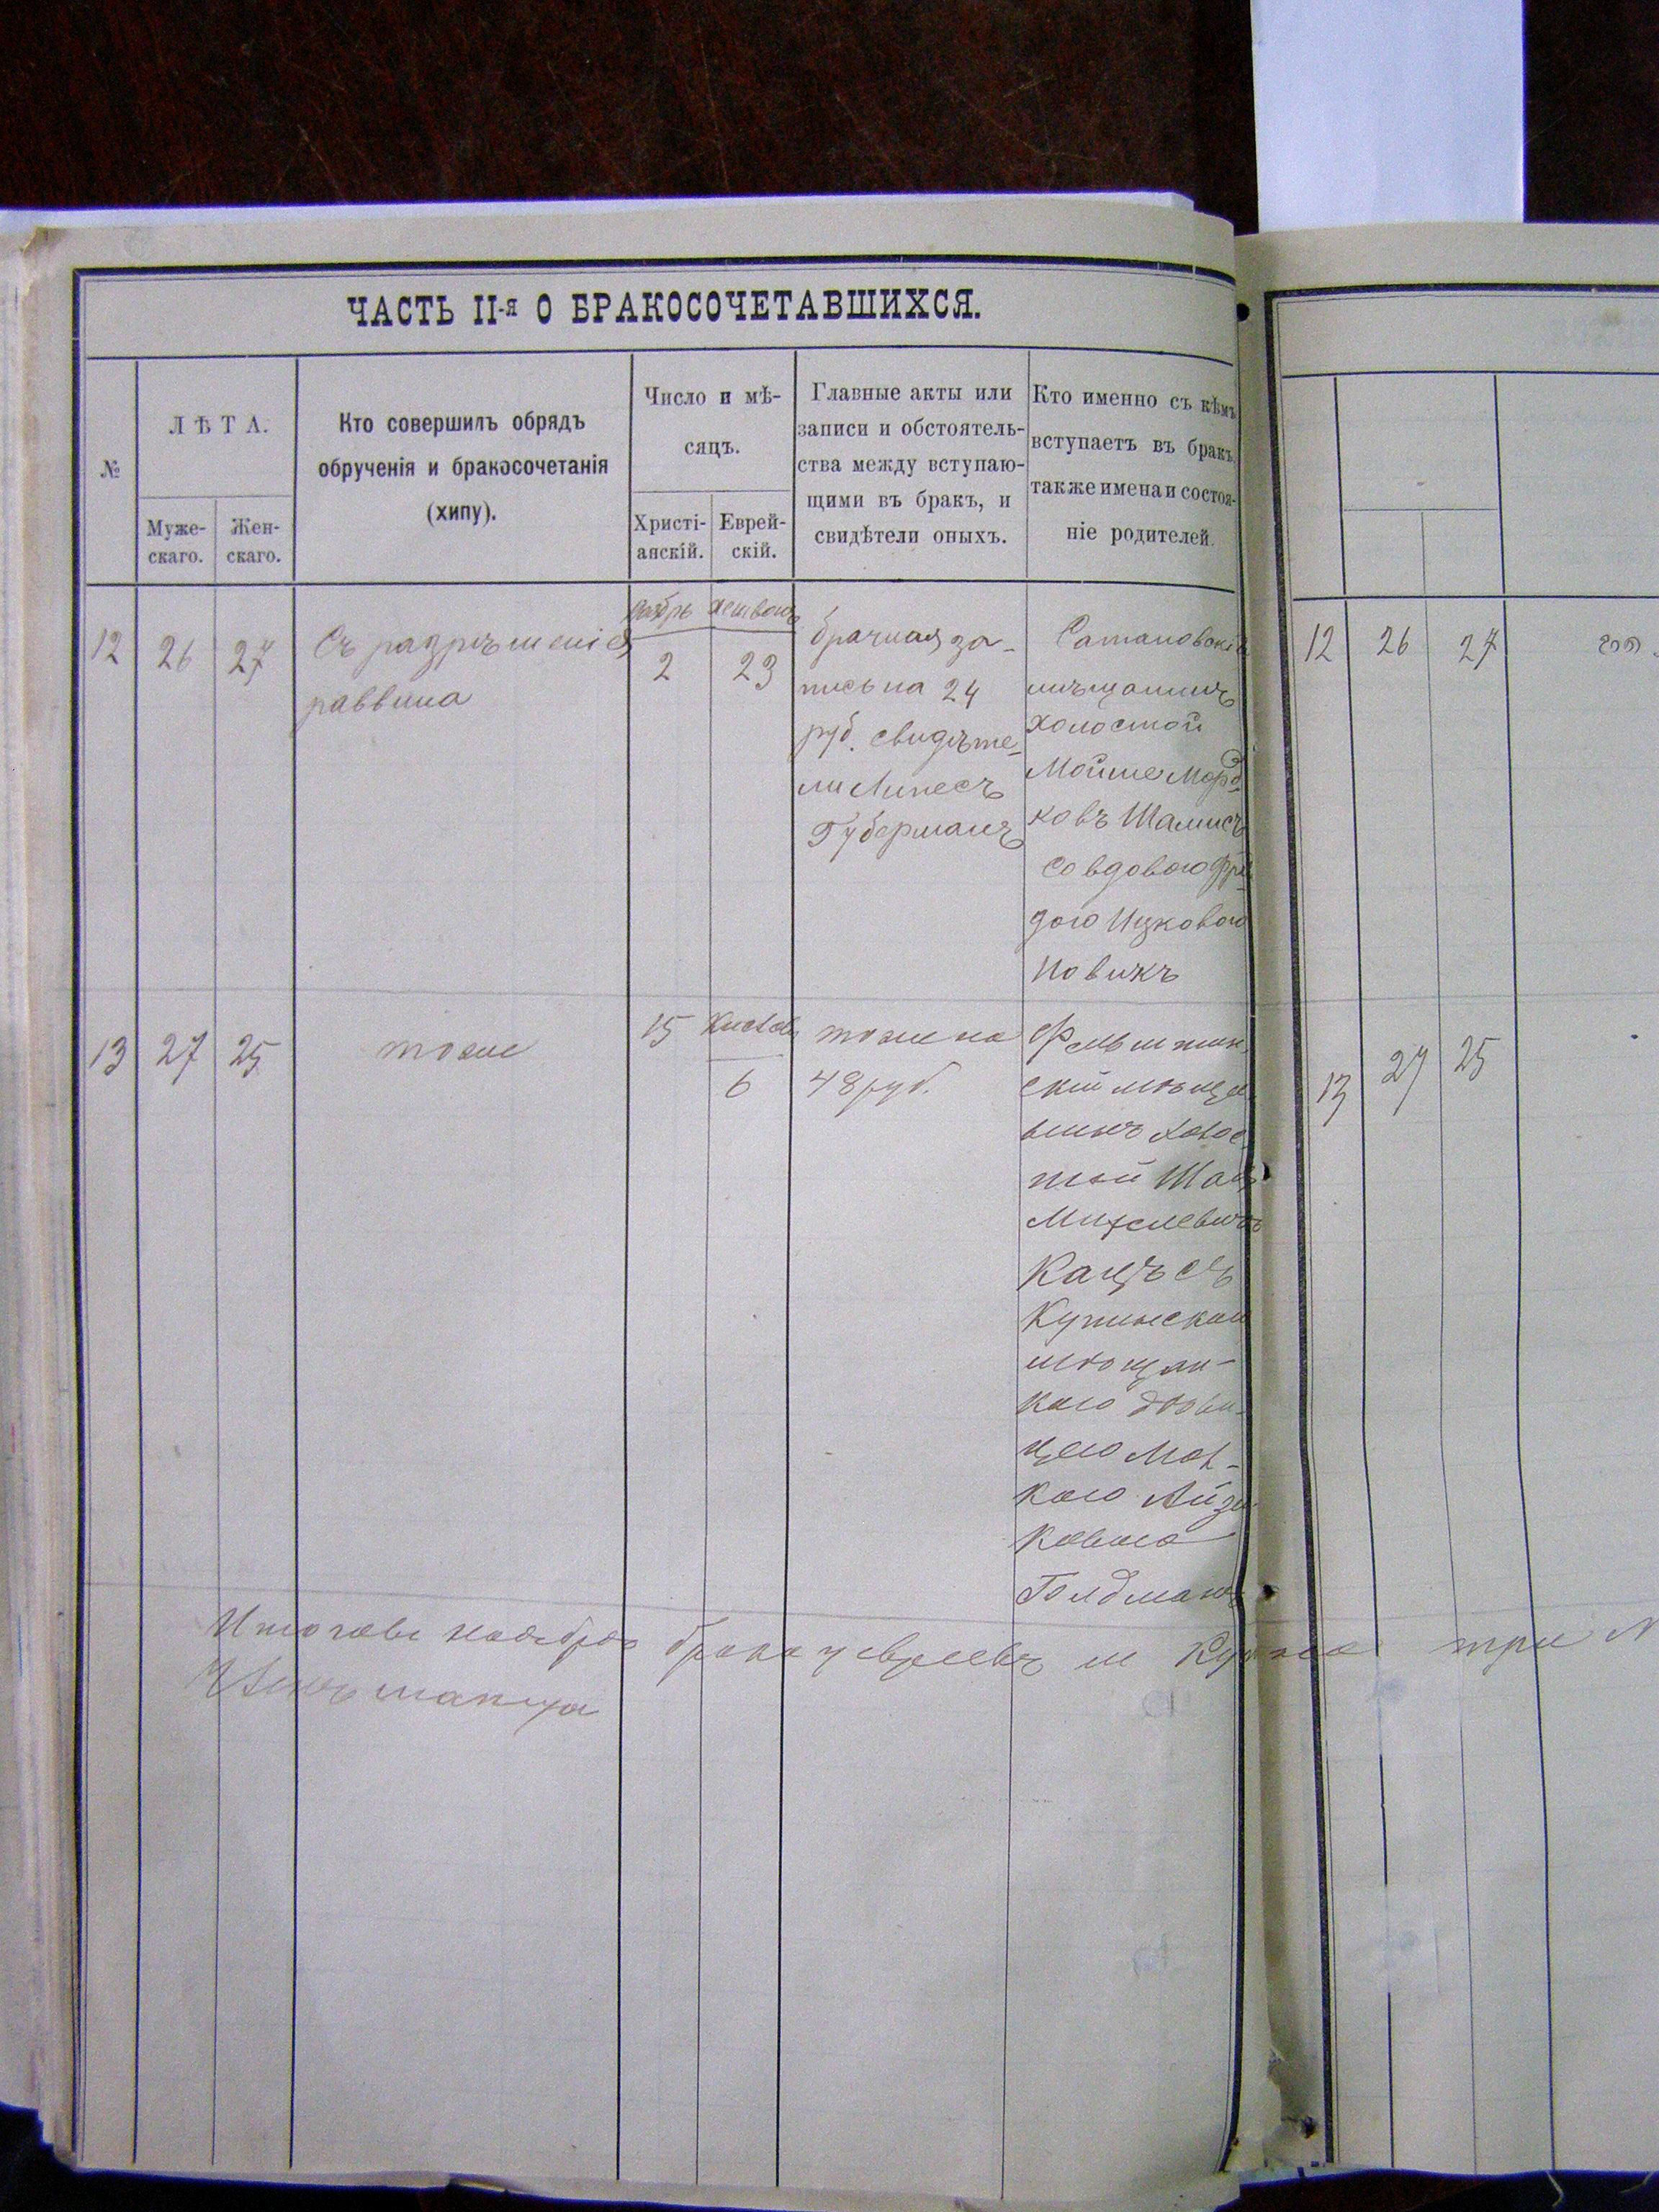 ЧАСТЬ II-я О БРАКОСОЧЕТАВШИХСЯ.
№
ЛѢТА.
Муже-
скаго.
Жен-
скаго.
Кто совершилъ обрядъ
обрученія и бракосочетанія
(хипу).
Число и мѣ-
сяцъ.
Христі-
анскій.
Еврей-
скій.
Главные акты или
записи и обстоятель-
ства между вступаю-
щими въ бракъ, и
свидѣтели оныхъ.
Кто именно съ кѣмъ
вступаетъ въ бракъ,
также имена и состоя-
ніе родителей.
12
26
27
Съ разрѣшенія
раввина
2
23
брачная за-
пись на 24
руб. свидѣте-
ли Липесъ
Губерманъ
Сатановскій
мѣщанинъ
холостой
Мойше Морд
ковъ Шамисъ
со вдовою
дою Ицковою
Новикъ
13
27
25
тоже
15
6
тоже на
48 руб.
Фельштин
скій мѣща
нинъ холос
той
Михелевичъ
Кацъ съ
Купинскою
мѣщан-
кою дѣви-
цею Мал-
кою Айзи-
ковою
Голдманъ
брака у евреевъ м Купина три
12
26
27
13
27
25